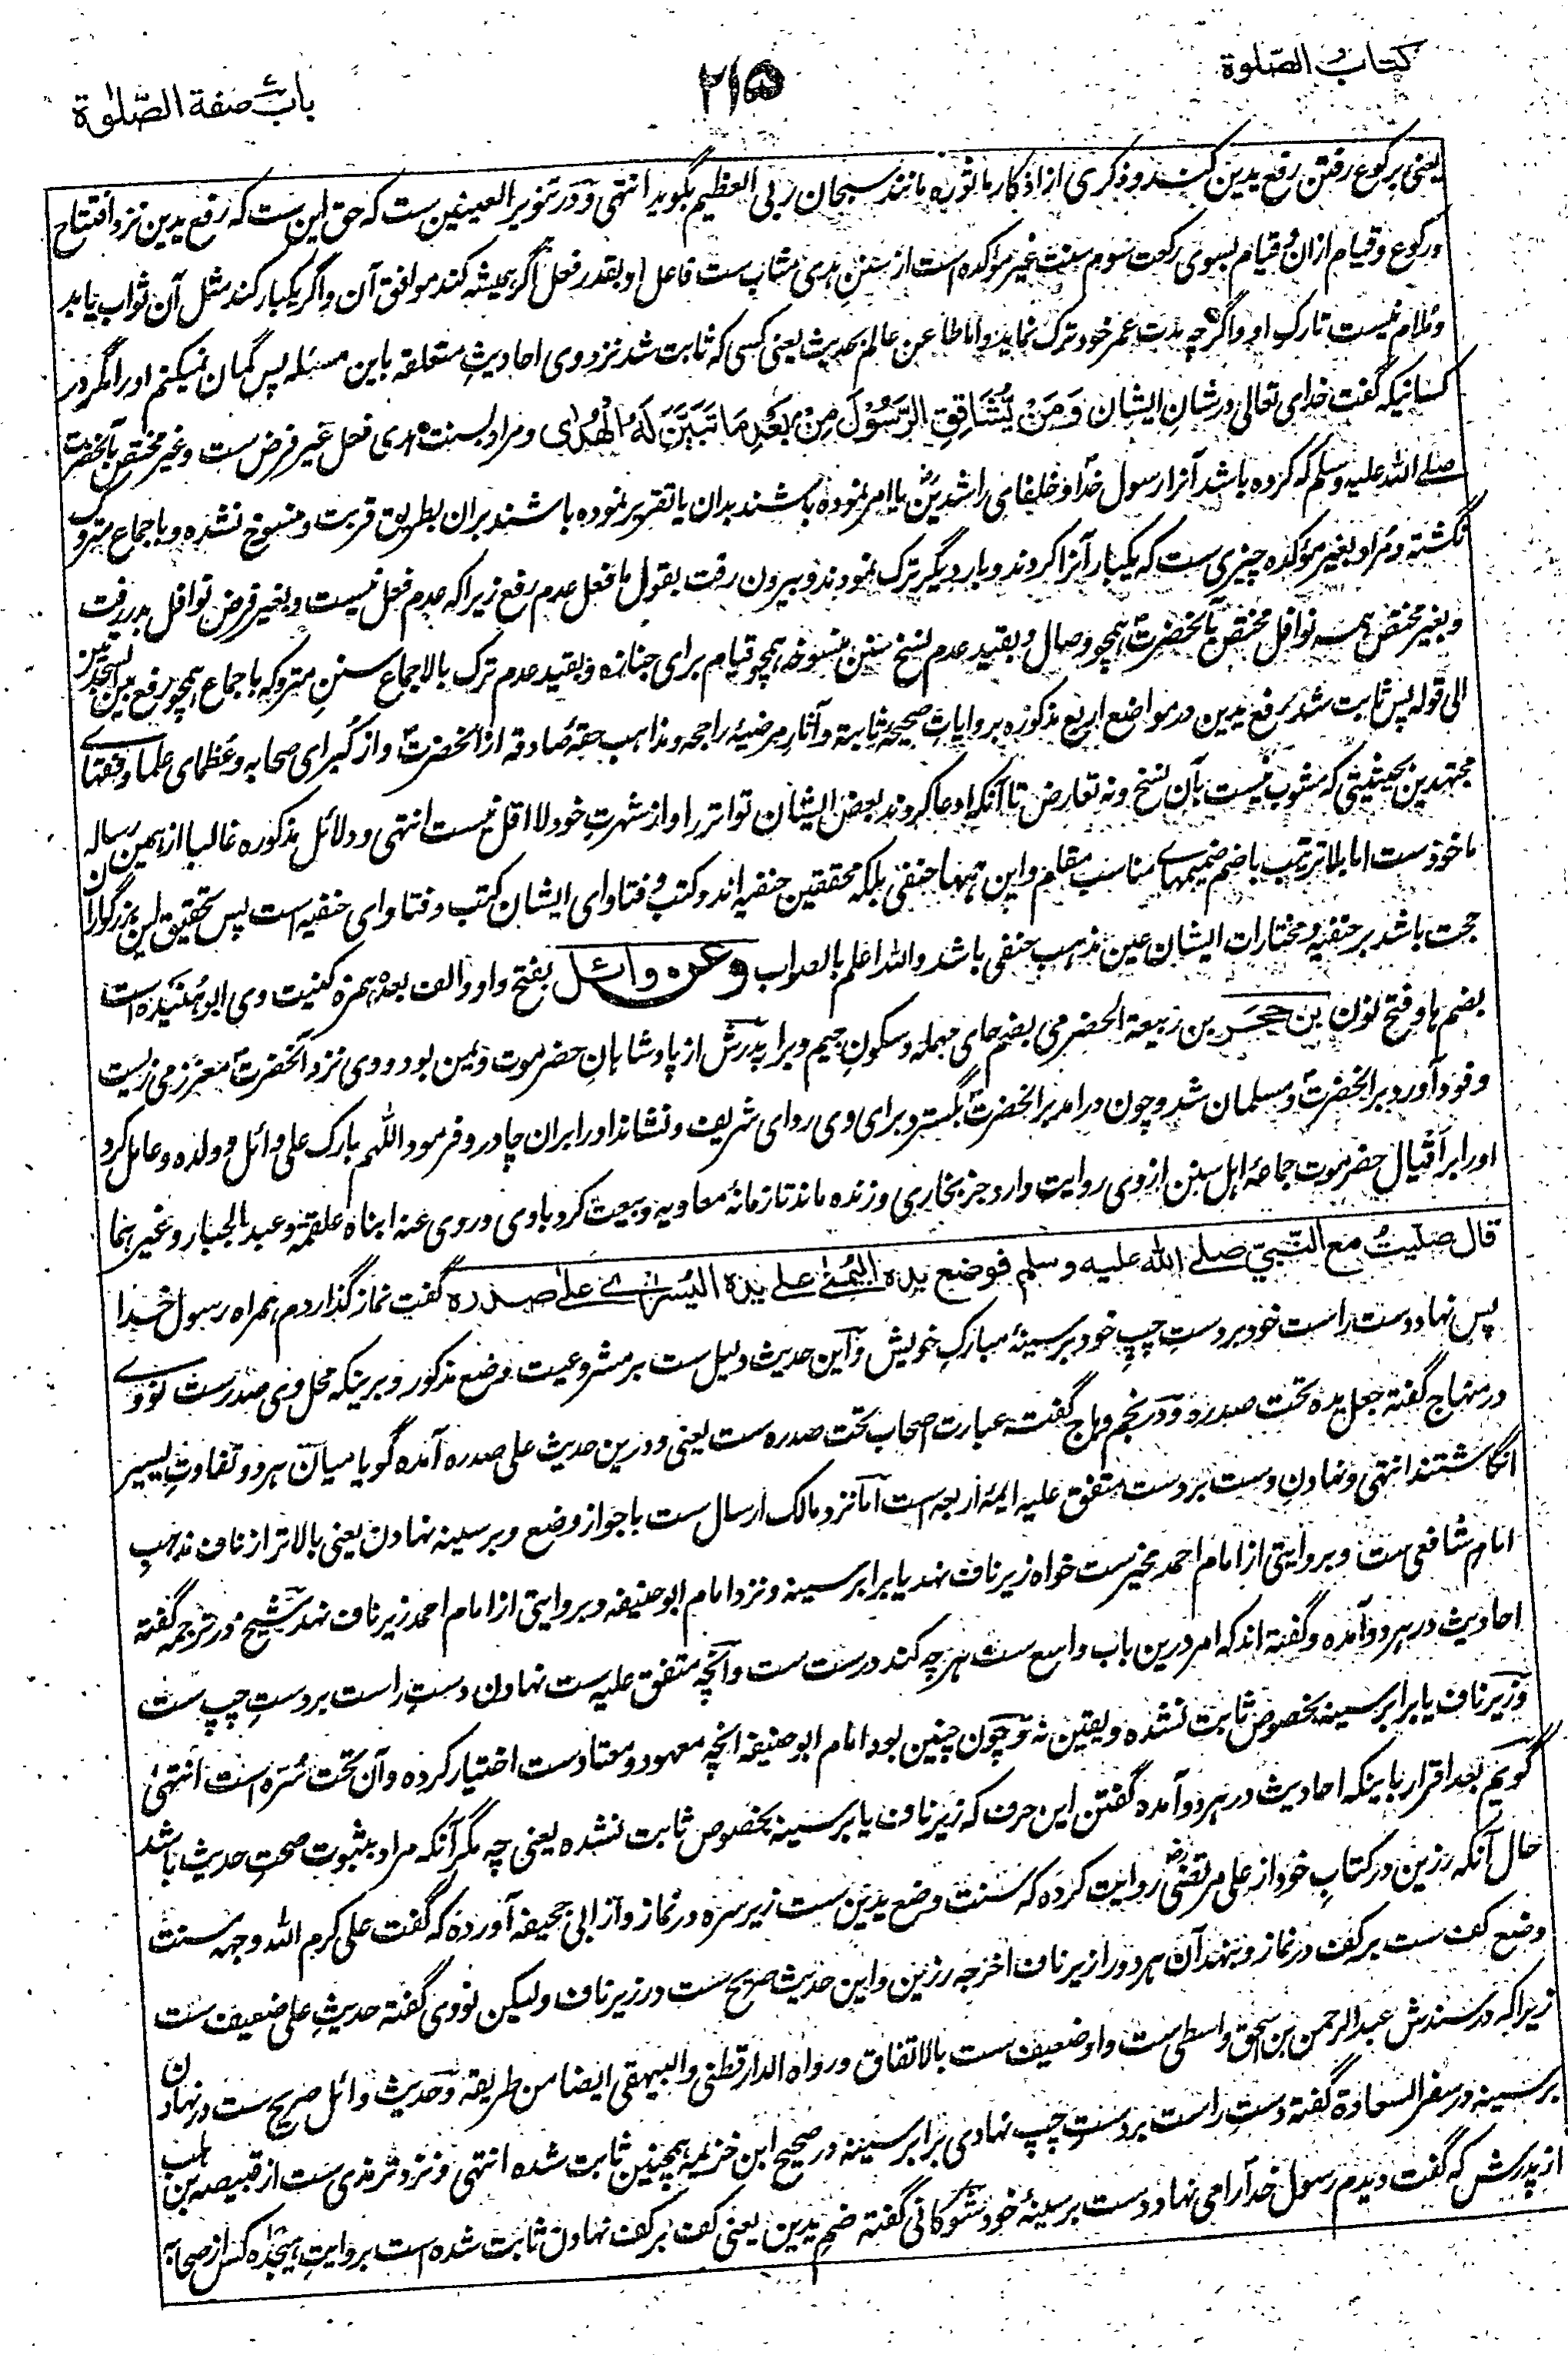 کتاب الصّلوة
۲۱۵
باب صفة الصّلوٰة
یعنی برکوع رفتن رفع یدین کند و ذکری از اذکار ماثوره مانند سبحان ربی العظیم بگوید انتهی و در تنویر العینین ست که حق این ست که رفع یدین نزد افتتاح
و رکوع و قیام ازان و قیام بسوی رکعت سوم سنت غیر مؤکده است از سنن هدی مثاب ست فاعل او بقدر فعل اگر همیشه کند موافق آن و اگر یکبار کند مثل آن ثواب یابد
و ملام نیست تارک او و اگرچه مدت عمر خود ترک نماید و اما طاعن عالم بحدیث یعنی کسی که ثابت شد نزد وی احادیثِ متعلقه باین مسئله پس گمان نمیکنم او را مگر در
کسانیکه گفت خدای تعالی در شانِ ایشان وَمَنْ یُّشَاقِقِ الرَّسُوْلَ مِنْ بَعْدِ مَا تَبَیَّنَ لَهُ الْهُدٰی و مراد بسنت هدی فعل غیر فرض ست و غیر مختص بآنحضرت
صلے الله علیه وسلم که کرده باشد آنرا رسول خدا و خلفای راشدین یا امر نموده باشند بدان یا تقریر نموده باشند بران بطریق قربت و منسوخ نشده و باجماع متروک
نگشته و مراد بغیر مؤکده چیزی ست که یکبار آنرا کردند و بار دیگر ترک نمودند و بیرون رفت بقول ما فعل عدم رفع زیرا که عدم فعل نیست و بغیر فرض نوافل بدر رفت
و بغیر مختص همه نوافل مختص بآنحضرت همچو وصال و بقید عدم نسخ سنن منسوخه همچو قیام برای جنازه و بقید عدم ترک بالاجماع سننِ متروکه باجماع همچو رفع بین السجدتین
الی قوله پس ثابت شد رفع یدین در مواضع اربع مذکوره بروایاتِ صحیحه ثابته و آثارِ مرضیهٔ راجحه و مذاهب حقهٔ صادقه از آنحضرت و از کبرای صحابه و عظمای علما و فقهاے
مجتهدین بحیثیتی که مشوب نیست بآن نسخ و نه تعارض تا آنکه ادعا کردند بعض ایشان تواتر را و از شهرتِ خود لااقل نیست انتهی و دلائل مذکوره غالبا از همین رساله
ماخوذ ست اما بلا ترتیب باضم ضمیمهاے مناسب مقام و این تنها حنفی بلکه محققین حنفیه اند و کتب و فتاوای ایشان کتب و فتاوای حنفیه است پس تحقیق این بزرگواران
حجت باشد بر حنفیه و مختارات ایشان عین مذهب حنفی باشد والله اعلم بالصواب وعن وائل بفتح واو و الف بعدهٔ همزه کنیت وی ابوهُنَیده است
بضم ها و فتح نون بن حجر بن ربیعة الحضرمی بضم حای مهمله و سکونِ جیم و برا پدرش از پادشاهانِ حضرموت و یمن بود و وی نزد آنحضرت معزز می زیست
وفود آورد بر آنحضرت و مسلمان شد و چون درامد بر آنحضرت بگسترد برای وی ردای شریف و نشاند او را بران چادر و فرمود اللهم بارک علی وائل و ولده و عامل کرد
او را بر اَقیال حضرموت جماعهٔ اهل سنن از وی روایت دارد جز بخاری و زنده ماند تا زمانهٔ معاویه و بیعت کرد با وی و روی عنه ابناه علقمة و عبد الجبار و غیرهما
قال صلیتُ مع النّبیّ صلے الله علیه وسلم فوضع یده الیُمنٰے علے یده الیُسرٰے علٰے صدره گفت نماز گذاردم همراه رسول خدا
پس نهاد دست راست خود بر دستِ چپِ خود بر سینهٔ مبارکِ خویش و این حدیث دلیل ست بر مشروعیت وضع مذکور و برینکه محل وی صدر ست نووے
در منهاج گفته جعل یده تحت صدره و در نجم وهاج گفته عبارت اصحاب تحت صدره ست یعنی و درین حدیث علی صدره آمده گویا میان هر دو تفاوتِ یسیر
انگاشتند انتهی و نهادنِ دست بر دست متفق علیه ایمهٔ اربعه است اما نزد مالک ارسال ست با جواز وضع و بر سینه نهادن یعنی بالاتر از ناف مذهبِ
امام شافعی ست و بروایتی از امام احمد مخیر ست خواه زیر ناف نهد یا برابر سینه و نزد امام ابوحنیفه و بروایتی از امام احمد زیر ناف نهد شیخ در ترجمه گفته
احادیث در هر دو آمده و گفته اند که امر درین باب واسع ست هر چه کند درست ست و آنچه متفق علیه ست نهادن دستِ راست بر دستِ چپ ست
و زیر ناف یا برابر سینه بخصوص ثابت نشده و یقین نه و چون چنین بود امام ابوحنیفه آنچه معهود و معتاد ست اختیار کرده و آن تحت سُرَه است انتهیٰ
گویم بعد اقرار باینکه احادیث در هر دو آمده گفتن این حرف که زیر ناف یا بر سینه بخصوص ثابت نشده یعنی چه مگر آنکه مراد بثبوت صحتِ حدیث باشد
حال آنکه رزین در کتابِ خود از علی مرتضیٰ روایت کرده که سنت وضع یدین ست زیر سره در نماز و از ابی جحیفه آورده که گفت علی کرم الله وجهه سنت
وضع کف ست بر کف در نماز و بنهد آن هر دو را زیر ناف اخرجه رزین و این حدیث صریح ست در زیر ناف و لیکن نووی گفته حدیثِ علی ضعیف ست
زیرا که در سندش عبدالرحمن بن اسحق واسطی ست و او ضعیف ست بالاتفاق و رواه الدارقطنی والبیهقی ایضا من طریقه و حدیث وائل صریح ست در نهادن
بر سینه در سفر السعادة گفته دستِ راست بر دستِ چپ نهادی برابر سینه در صحیح ابن خزیمه همچنین ثابت شده انتهی و نزد ترمذی ست از قبیصه بن هلب
از پدرش که گفت دیدم رسول خدا را می نهاد دست بر سینهٔ خود شوکانی گفته ضم یدین یعنی کف بر کف نهادن ثابت شده است بروایتِ هیجده کس از صحابه